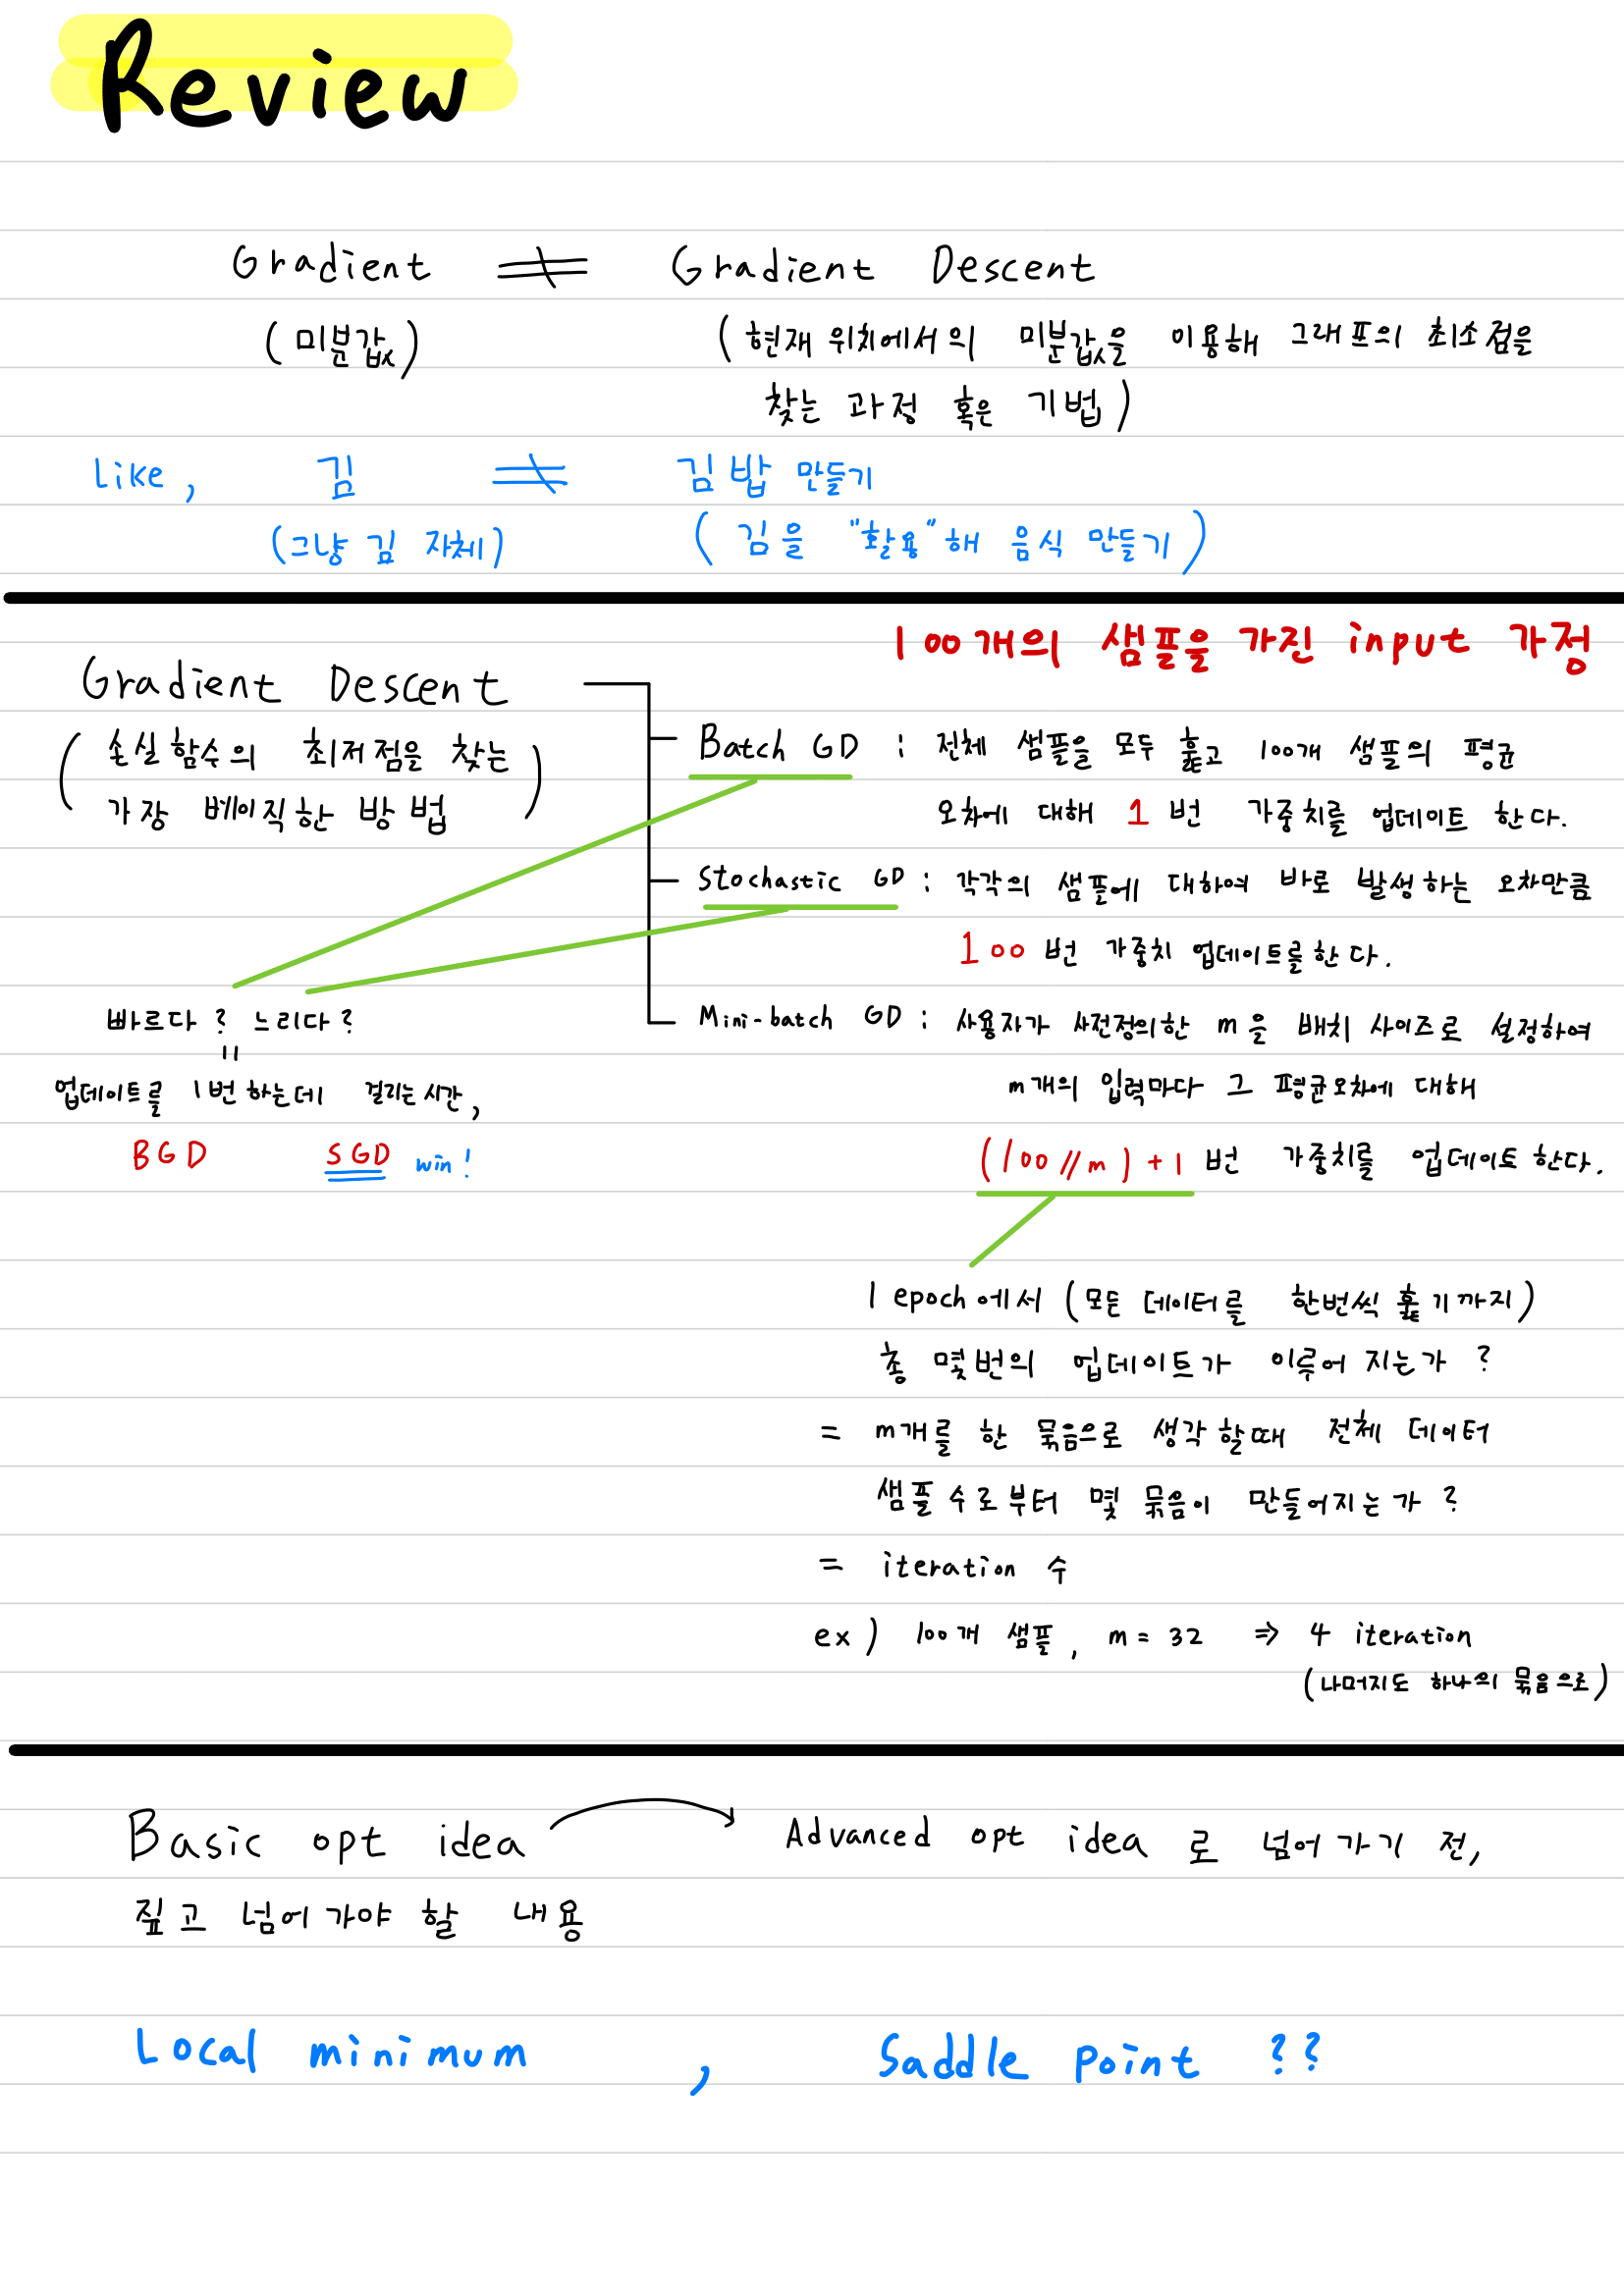 Review
Gradient ≠ Gradient Descent
(미분값) (현재 위치에서의 미분값을 이용해 그래프의 최소점을
찾는 과정 혹은 기법)
Like, 김 ≠ 김밥 만들기
(그냥 김 자체) (김을 "활용"해 음식 만들기)
100개의 샘플을 가진 input 가정
Gradient Descent
(손실함수의 최저점을 찾는
가장 베이직한 방법)
Batch GD : 전체 샘플을 모두 훑고 100개 샘플의 평균
오차에 대해 1번 가중치를 업데이트 한다.
Stochastic GD : 각각의 샘플에 대하여 바로 발생하는 오차만큼
100번 가중치 업데이트를한다.
Mini-batch GD : 사용자가 사전정의한 m을 배치 사이즈로 설정하여
m개의 입력마다 그 평균오차에 대해
(100//m)+1 번 가중치를 업데이트한다.
빠르다? 느리다?
=
업데이트를 1번 하는데 걸리는 시간,
BGD SGD win!
1 epoch에서 (모든 데이터를 한번씩 훑기까지)
총 몇번의 업데이트가 이루어 지는가?
= m개를 한 묶음으로 생각할때 전체 데이터
샘플 수로부터 몇 묶음이 만들어지는가?
= iteration 수
ex) 100개 샘플, m = 32 ⇒ 4 iteration
(나머지도 하나의 묶음으로)
Basic opt idea → Advanced opt idea 로 넘어가기 전,
짚고 넘어가야 할 내용
Local minimum , Saddle point ??